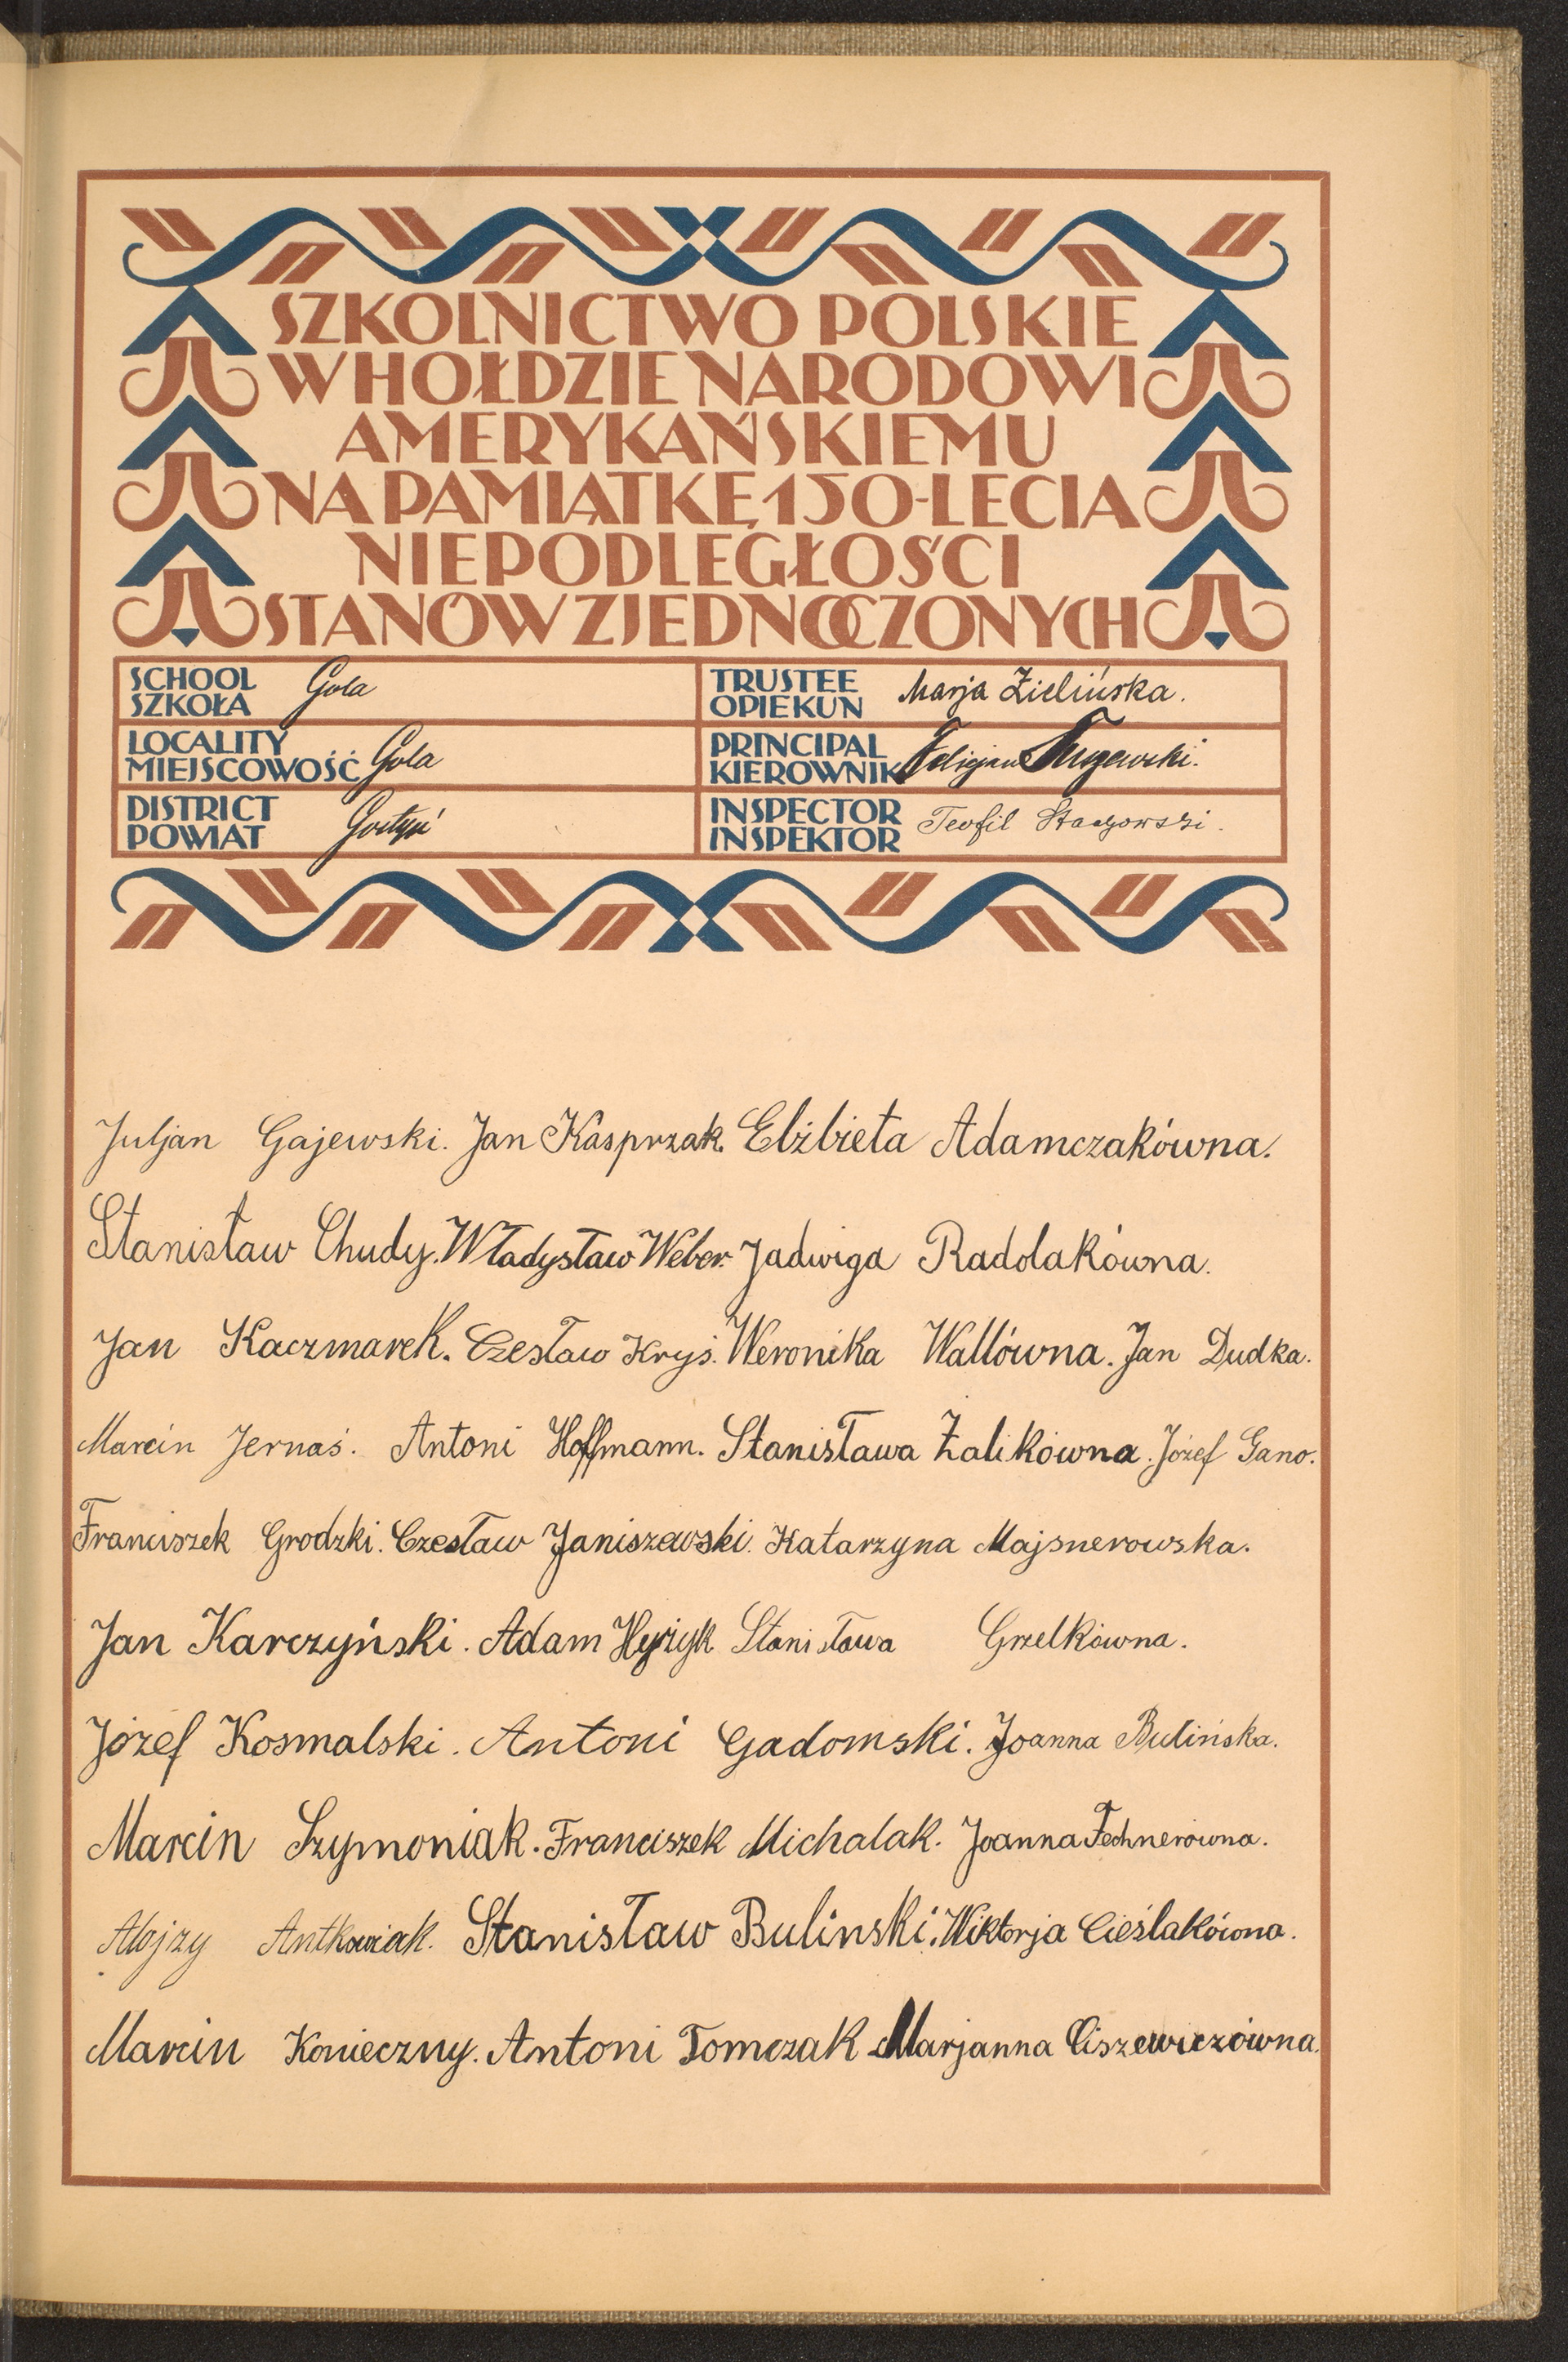 SZKOLNICTWO POLSKIE
W HOŁDZIE NARODOWI
AMERYKAŃSKIEMU
NA PAMIĄTKĘ 150-LECIA
NIEPODLEGŁOŚCI
STANÓW ZJEDNOCZONYCH
SCHOOL
SZKOŁA Gola
TRUSTEE
OPIEKUN Marja Zielińska.
LOCALITY
MIEJSCOWOŚĆ Gola
PRINCIPAL
KIEROWNIK Felicjan
DISTRICT
POWIAT Gostyń
INSPECTOR
INSPEKTOR Teofil
Juljan Gajewski. Jan Kasprzak. Elżbieta Adamczakówna.
Stanisław Chudy. Władysław Weber. Jadwiga Radolakówna.
Jan Kaczmarek. Czesław Kryś. Weronika Wallówna. Jan Dudka.
Marcin Jernaś. Antoni Hoffmann. Stanisława Żalikówna. Józef Gano.
Franciszek Grodzki. Czesław Janiszewski. Katarzyna Majsnerowska.
Jan Karczyński. Adam Hyżyk Stanisława Grzelkówna.
Józef Kosmalski. Antoni Gadomski. Joanna Bulińska.
Marcin Szymoniak. Franciszek Michalak. Joanna Fechnerówna.
Alojzy Antkowiak. Stanisław Bulinski. Wiktorja Cieślakówna.
Marcin Konieczny. Antoni Tomczak Marjanna Ciszewiczówna.